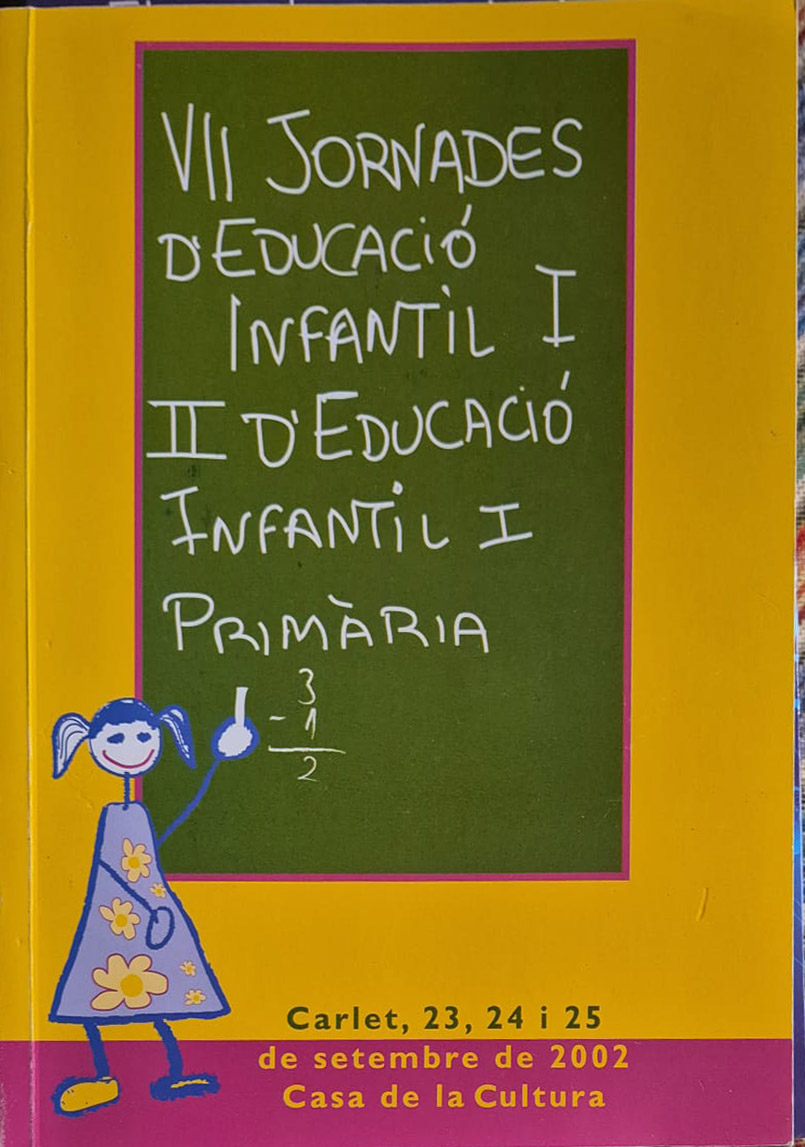 VII JORNADES
D'EDUCACIÓ
INFANTIL I
II D'EDUCACIÓ
INFANTIL I
PRIMÀRIA
3
- 1
2
Carlet, 23, 24 i 25
de setembre de 2002
Casa de la Cultura